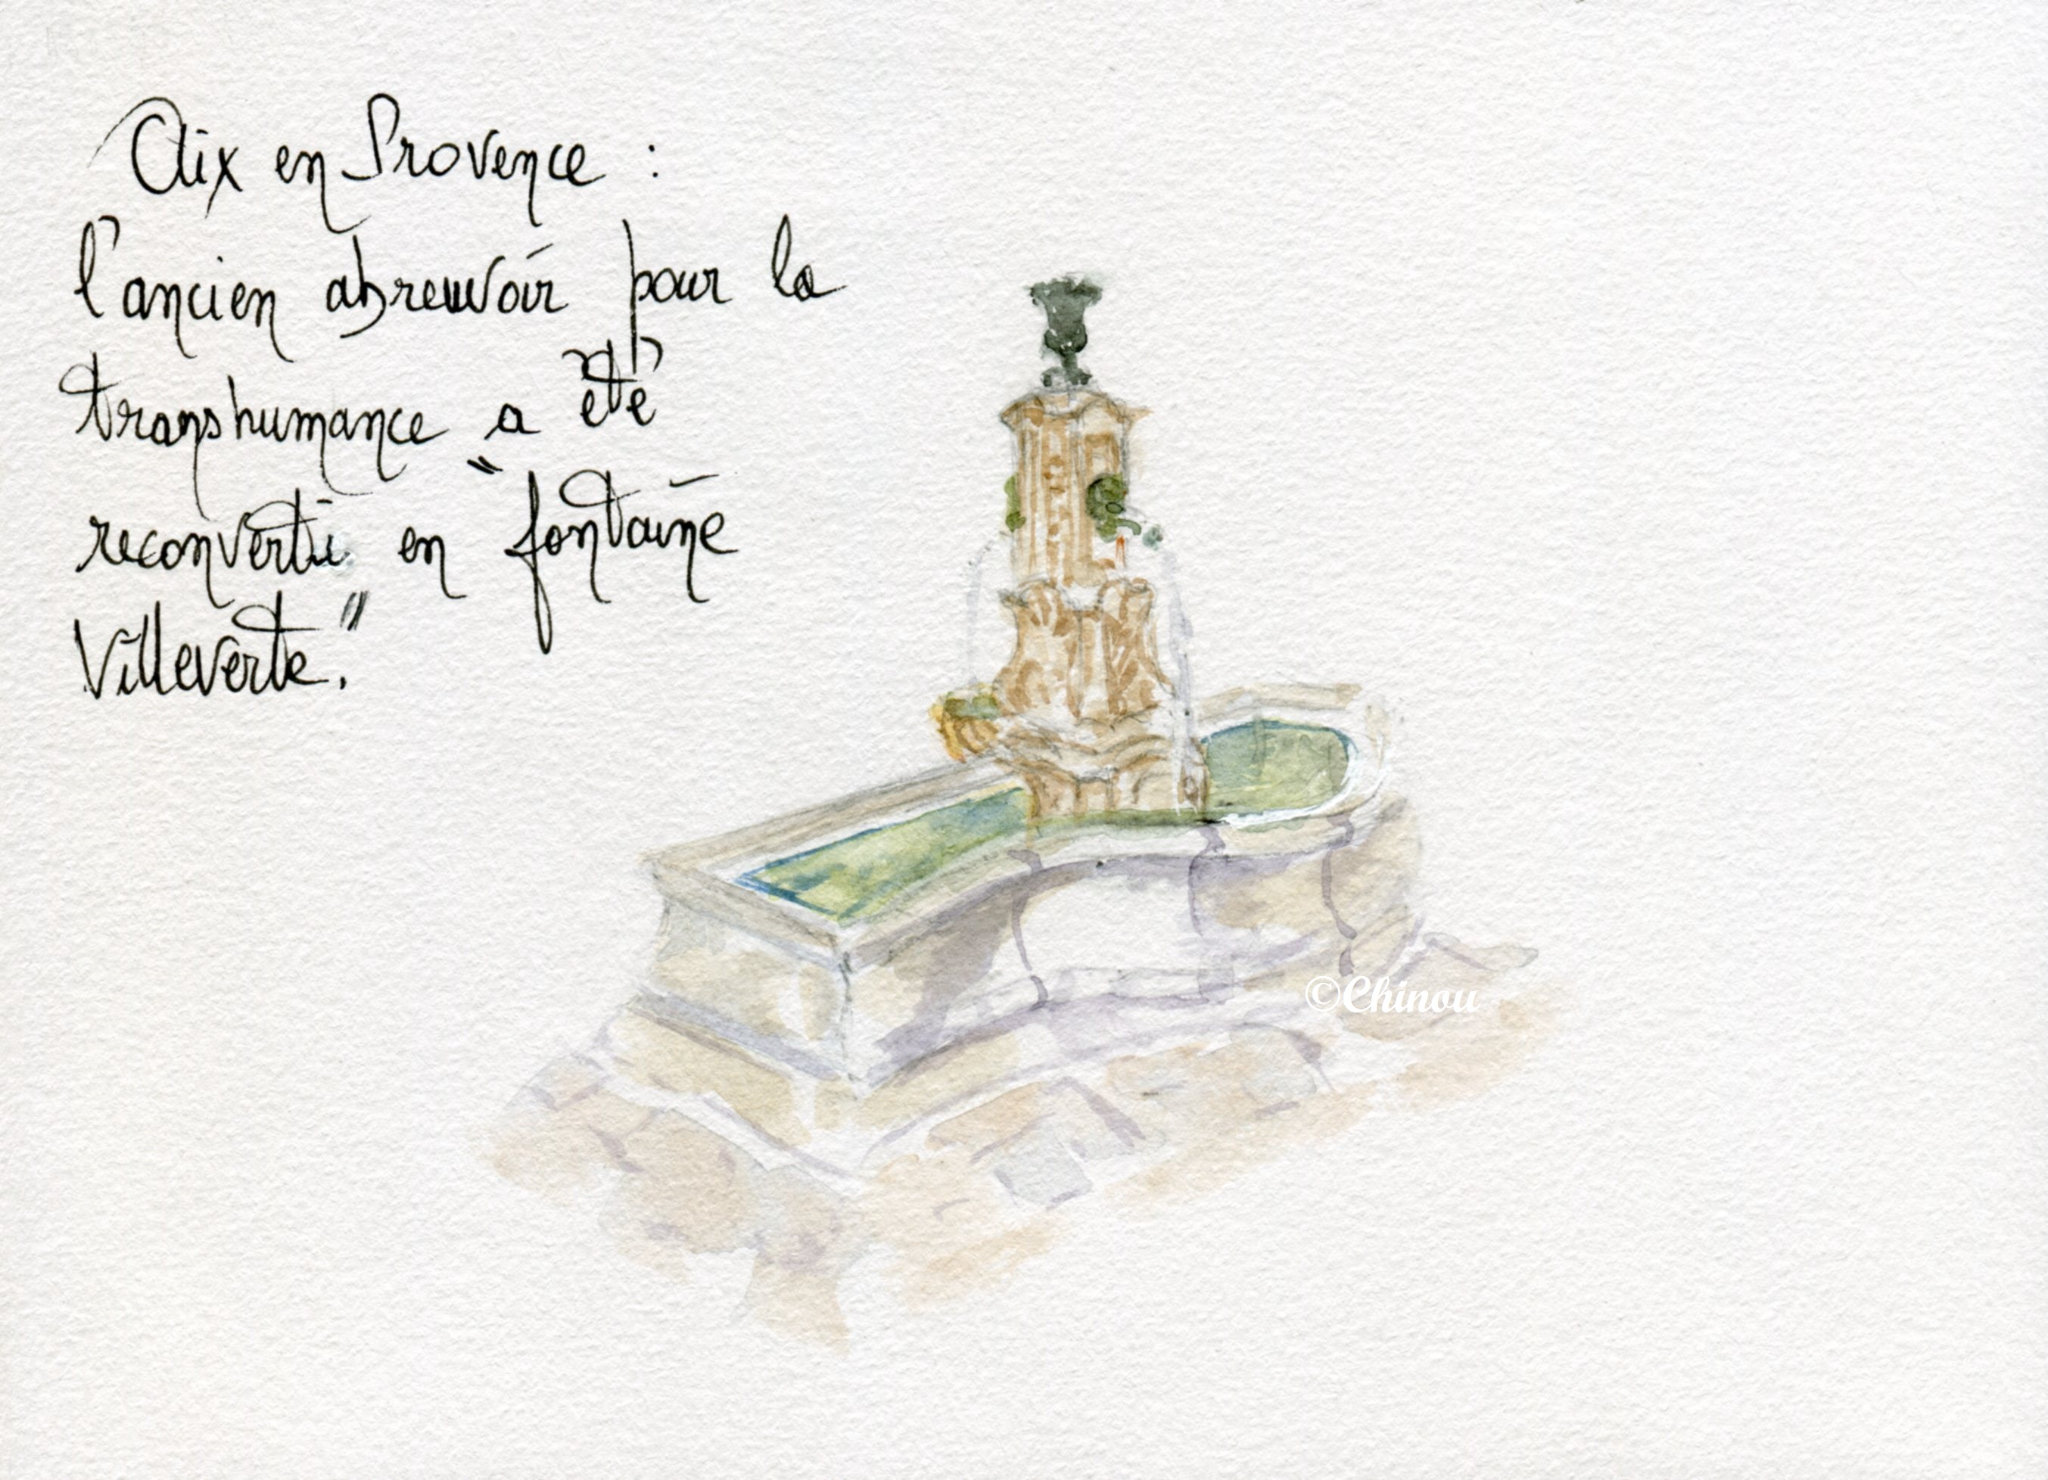 Aix en Provence :
l'ancien abreuvoir pour la
transhumance a été
reconverti en "fontaine
Villeverte."
©Chinou